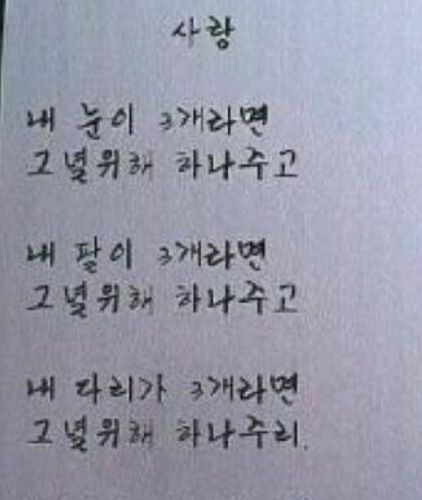 사랑
내 눈이 3개라면
그녈위해 하나주고
내 팔이 3개라면
그녈위해 하나주고
내 다리가 3개라면
그녈위해 하나주리.